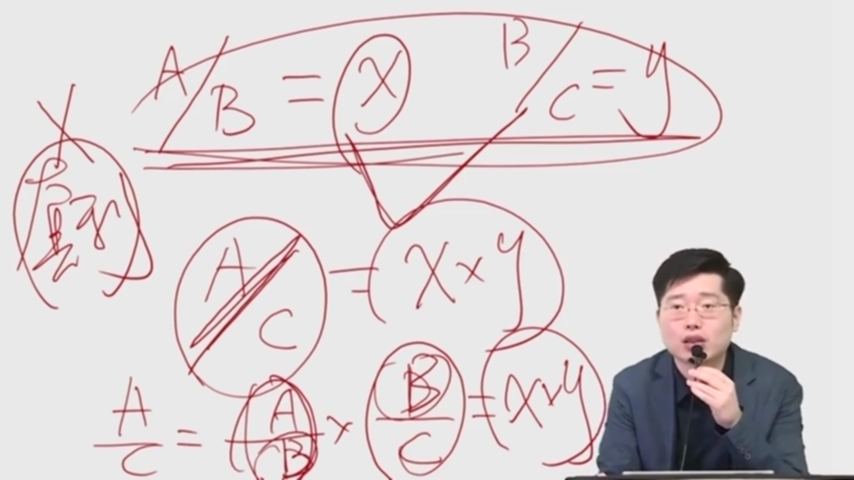 A/B = X B/C = y
A/C = X × y
A/C = A/B × B/C = X × y